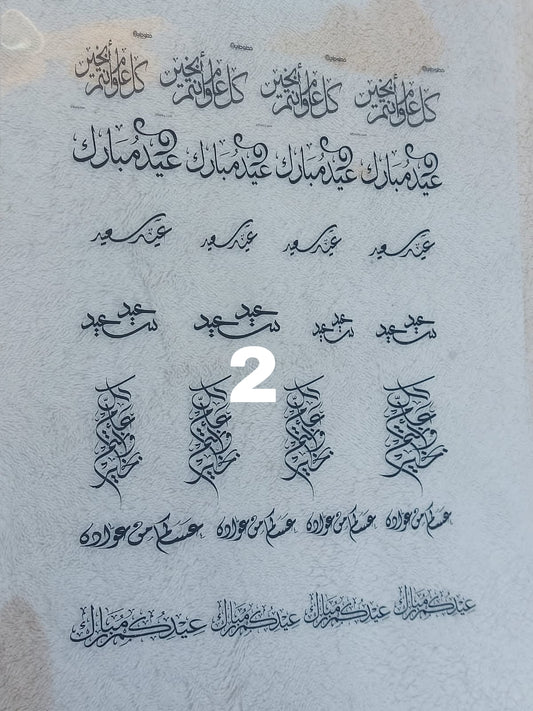 كل عام وأنتم بخير كل عام وأنتم بخير كل عام وأنتم بخير كل عام وأنتم بخير
عيد مبارك عيد مبارك عيد مبارك عيد مبارك
عيد سعيد عيد سعيد عيد سعيد عيد سعيد
عيد سعيد عيد سعيد عيد سعيد عيد سعيد
2
كل عام وانتم بخير كل عام وانتم بخير كل عام وانتم بخير كل عام وانتم بخير
عساكم من عواده عساكم من عواده عساكم من عواده عساكم من عواده
عيدكم مبارك عيدكم مبارك عيدكم مبارك عيدكم مبارك